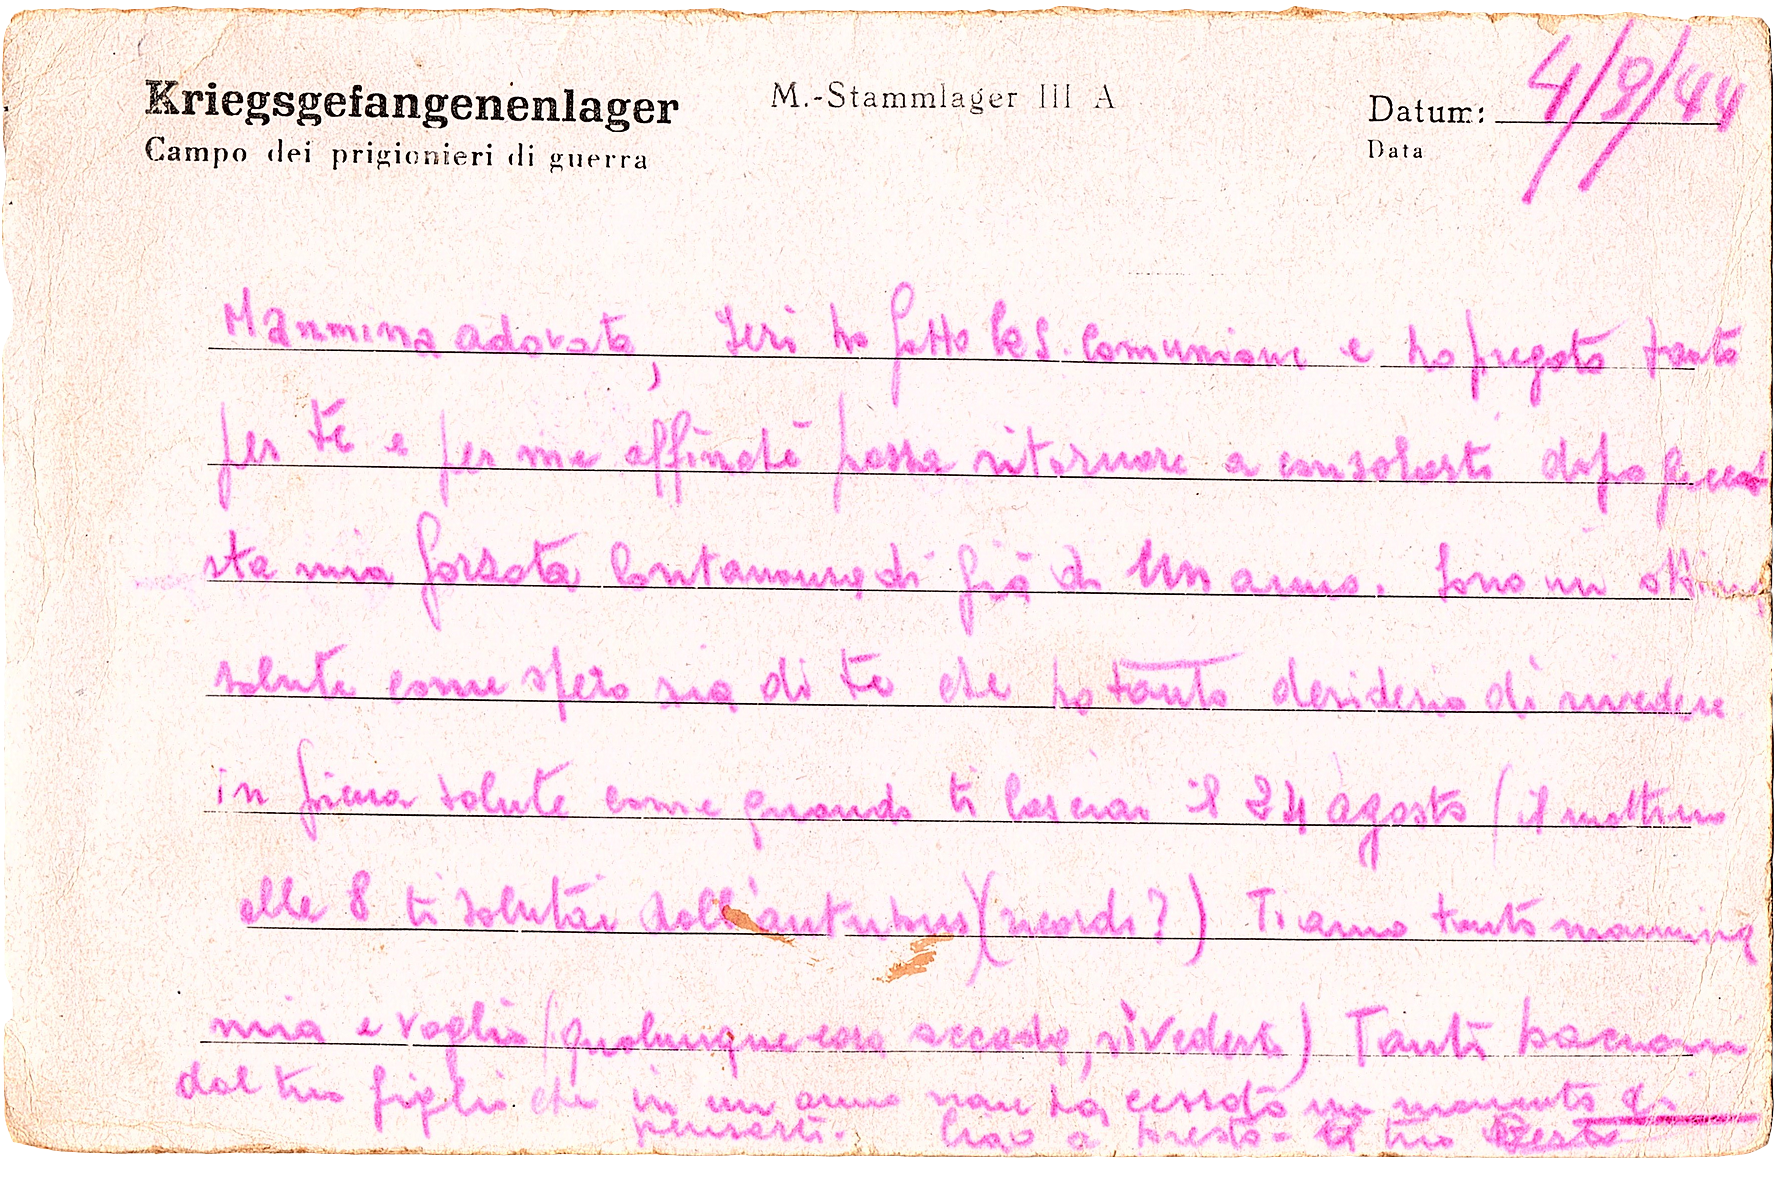 Kriegsgefangenenlager
M.-Stammlager III A
Datum: 4/9/44
Campo dei prigionieri di guerra
Data
Mammina adorata, Ieri ho fatto la S. Comunione e ho pregato tanto
per te e per me affinchè possa ritornare a consolarti dopo que
sta mia forzata lontananza di già di un anno. Sono in ottima
salute come spero sia di te che ho tanto desiderio di rivedere
in piena salute come quando ti lasciai il 24 agosto (il mattino
alle 8 ti salutai dall'autobus) (ricordi?) Ti amo tanto mammina
mia e voglio (qualunque cosa accada, rivederti) Tanti bacioni
dal tuo figlio che in un anno non ha cessato un momento di
pensarti. Ciao a presto - il tuo